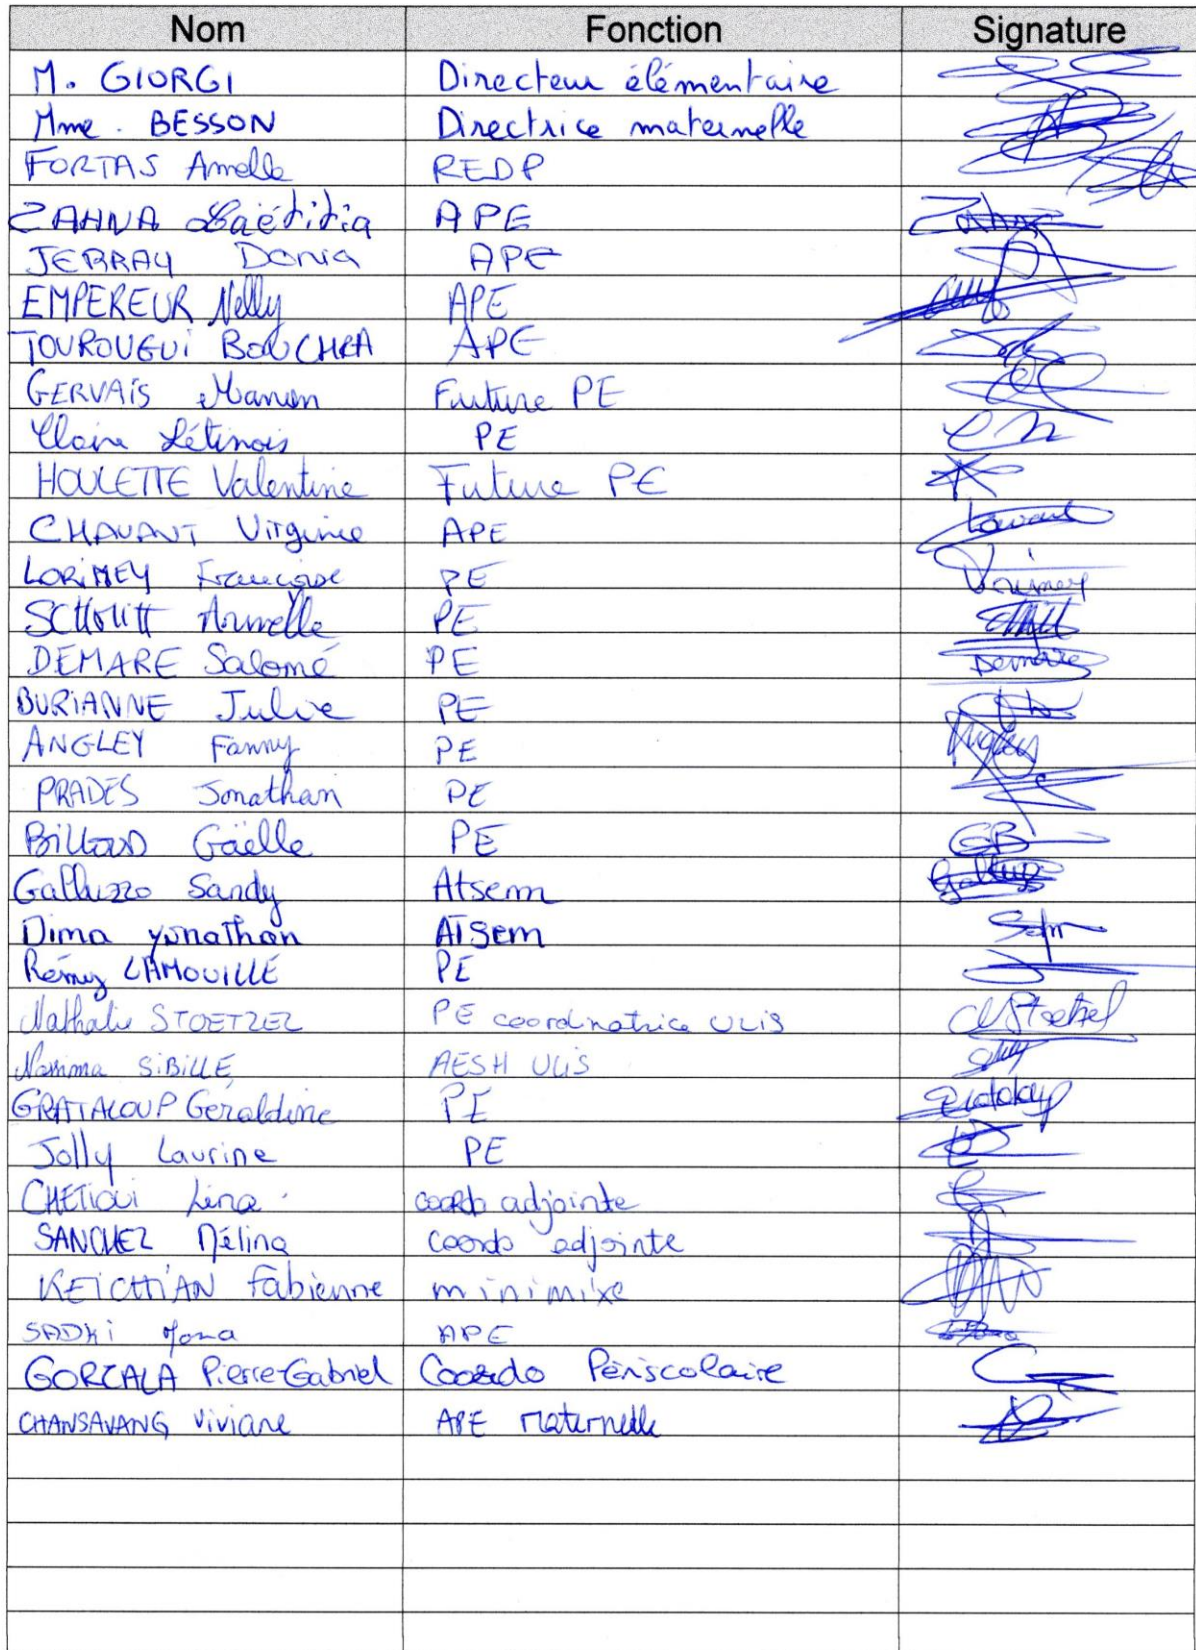 Nom Fonction Signature
M. GIORGI Directeur élémentaire
Mme. BESSON Directrice maternelle
FORTAS Amelle REDP
ZAHNA Laëtitia APE Zahna
JERRAY Donia APE
EMPEREUR Nelly APE
TOUROUGUi BOUCHRA APE
GERVAiS Manon Future PE
Claire Létinois PE
HOULETTE Valentine Future PE
CHAVANT Virginie APE
LORiMEY Françoise PE Lorimey
SCHMITT Armelle PE
DEMARE Salomé PE Demare
BURiANNE Julie PE
ANGLEY Fanny PE Angley
PRADES Jonathan PE
BiLLOUD Gaëlle PE GB
Galluzzo Sandy Atsem
Dima yonathan ATSem
Rémy LAMOUILLE PE
Nathalie STOETZEL PE coordinatrice ULiS Stoetzel
Nassima SiBiLLE AESH ULiS
GRATALOUP Géraldine PE
Jolly Laurine PE
CHETIOUI Lina coordo adjointe
SANCHEZ Mélina coordo adjointe
KEICHiAN Fabienne minimixe
SADKi Mona APE
GORZALA Pierre-Gabriel Coordo Périscolaire
CHANSAVANG Viviane APE maternelle